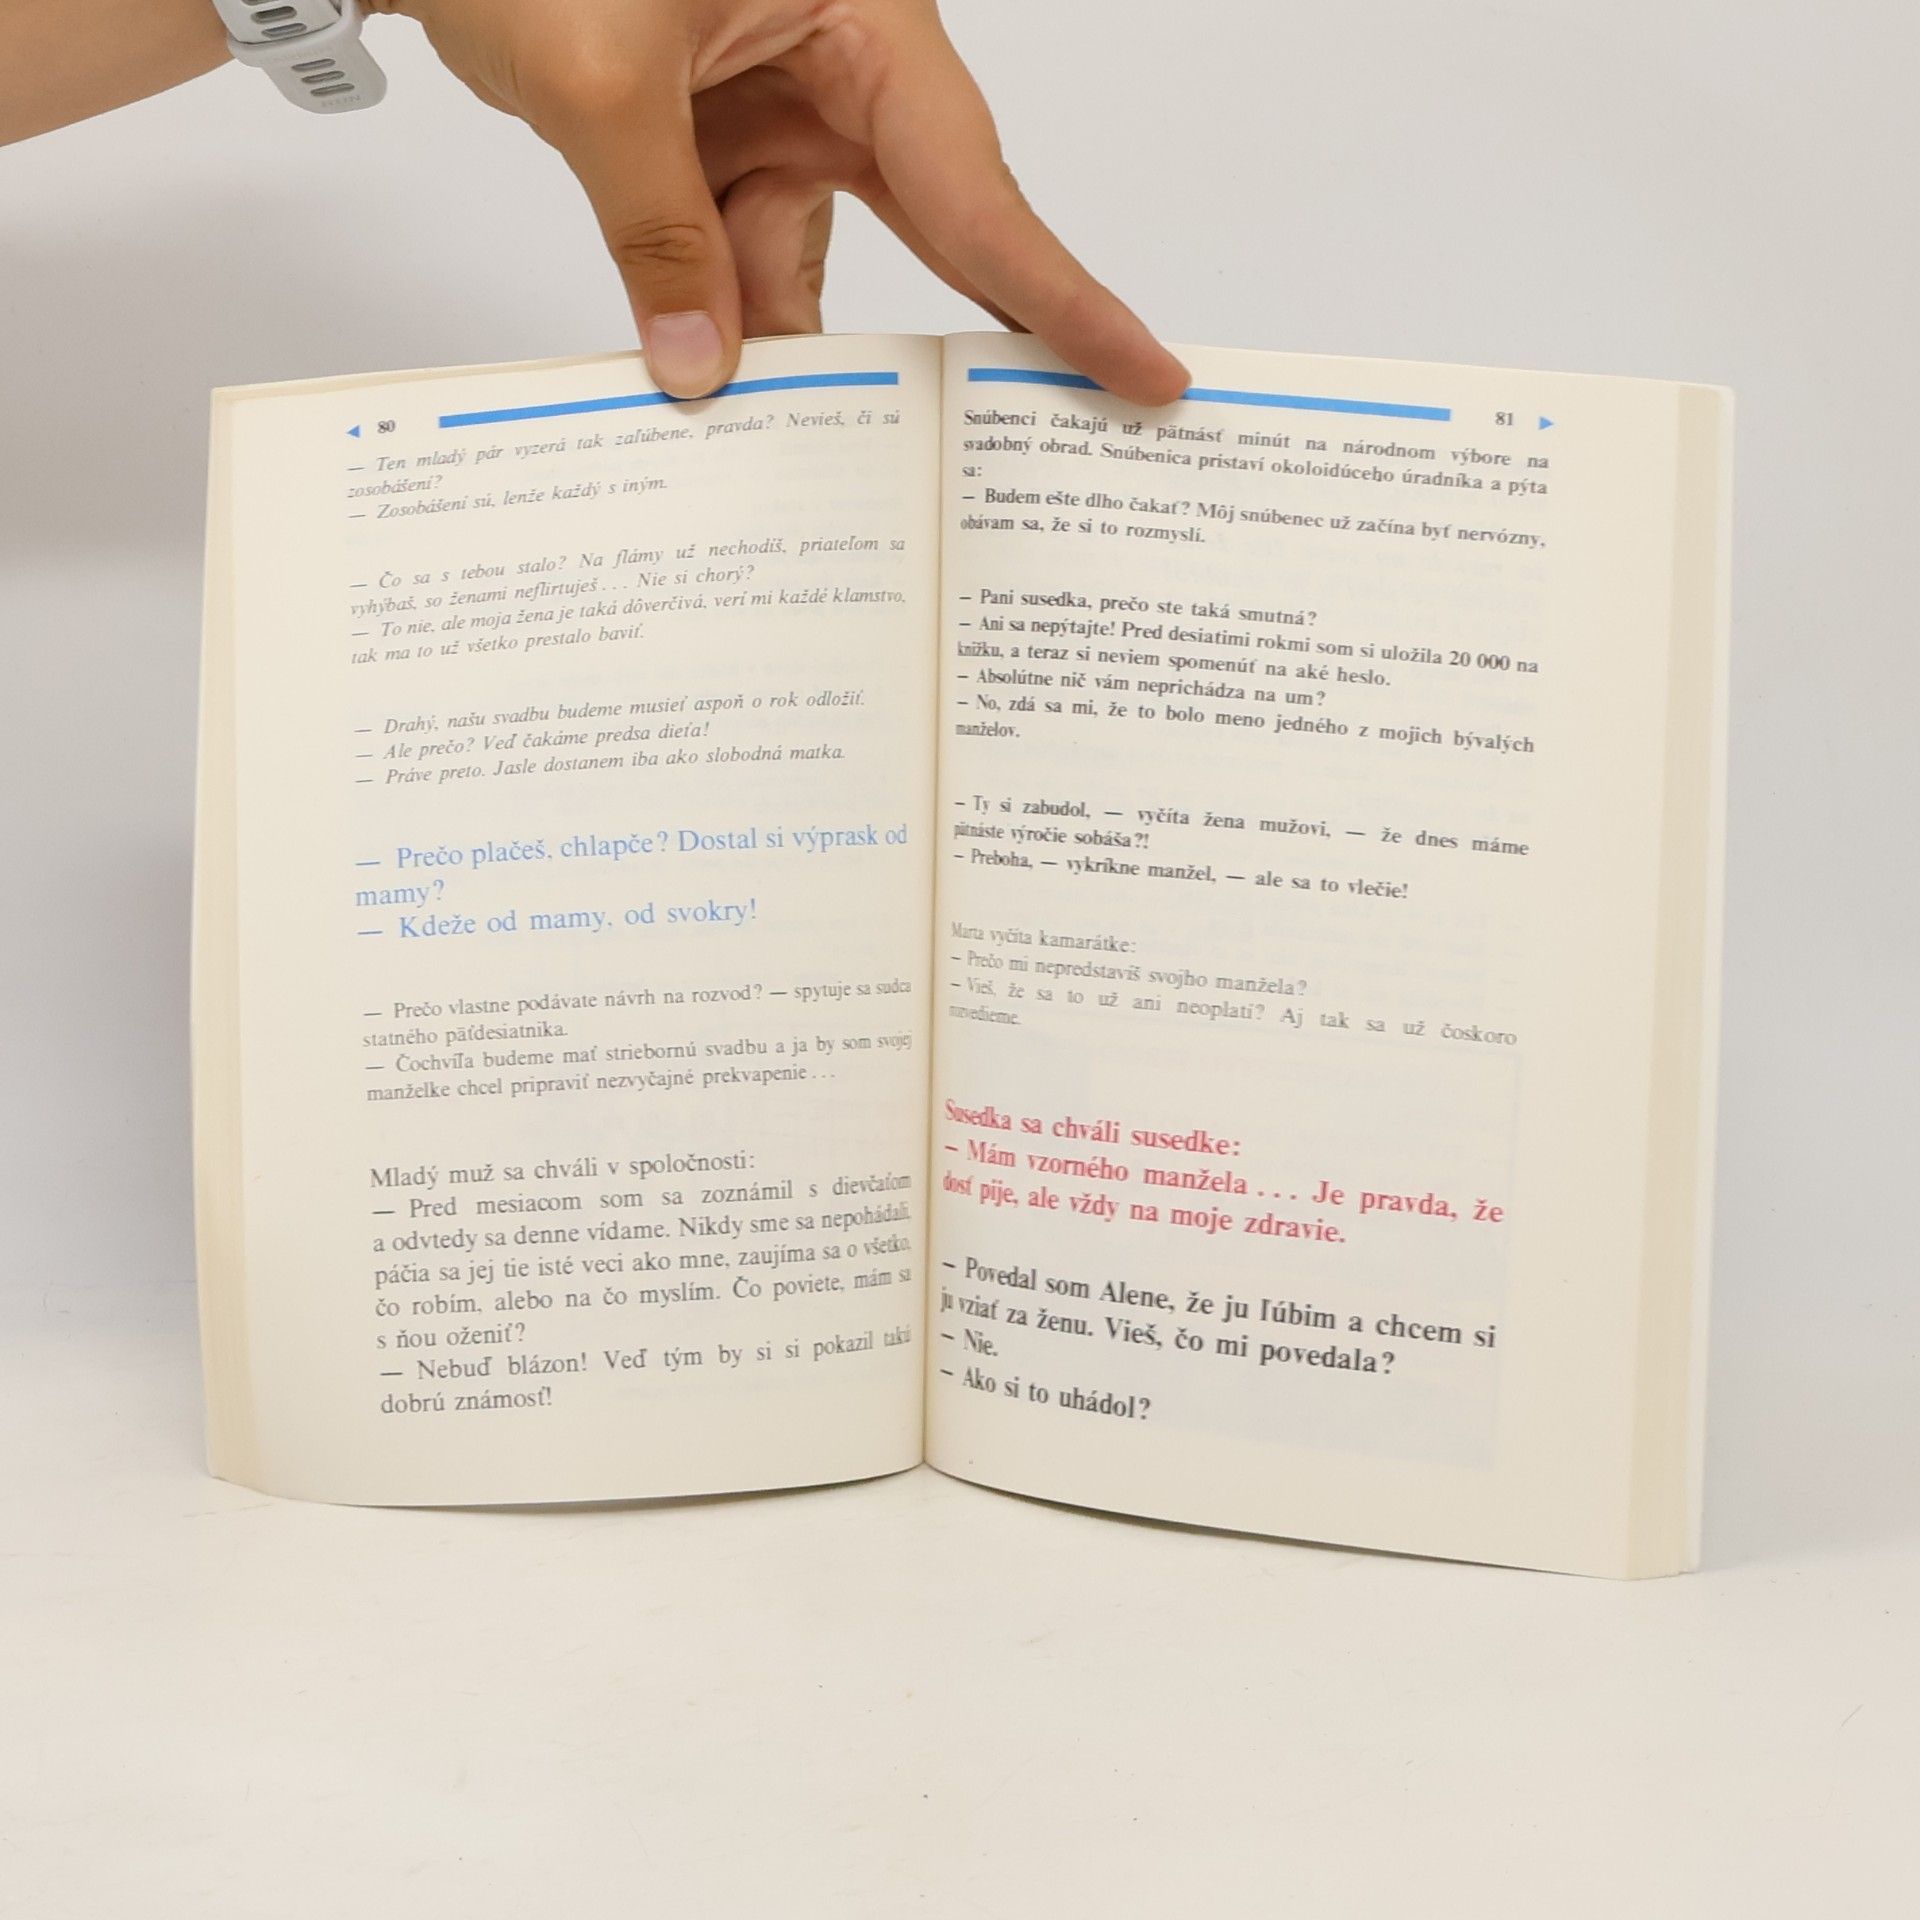 80
— Ten mladý pár vyzerá tak zaľúbene, pravda? Nevieš, či sú
zosobášení?
— Zosobášení sú, lenže každý s iným.
— Čo sa s tebou stalo? Na flámy už nechodíš, priateľom sa
vyhýbaš, so ženami neflirtuješ... Nie si chorý?
— To nie, ale moja žena je taká dôverčivá, verí mi každé klamstvo,
tak ma to už všetko prestalo baviť.
— Drahý, našu svadbu budeme musieť aspoň o rok odložiť.
— Ale prečo? Veď čakáme predsa dieťa!
— Práve preto. Jasle dostanem iba ako slobodná matka.
— Prečo plačeš, chlapče? Dostal si výprask od
mamy?
— Kdeže od mamy, od svokry!
— Prečo vlastne podávate návrh na rozvod? — spytuje sa sudca
statného päťdesiatnika.
— Čochvíľa budeme mať striebornú svadbu a ja by som svojej
manželke chcel pripraviť nezvyčajné prekvapenie...
Mladý muž sa chváli v spoločnosti:
— Pred mesiacom som sa zoznámil s dievčaťom
a odvtedy sa denne vídame. Nikdy sme sa nepohádali,
páčia sa jej tie isté veci ako mne, zaujíma sa o všetko,
čo robím, alebo na čo myslím. Čo poviete, mám sa
s ňou oženiť?
— Nebuď blázon! Veď tým by si si pokazil takú
dobrú známosť!
81
Snúbenci čakajú už pätnásť minút na národnom výbore na
svadobný obrad. Snúbenica pristaví okoloidúceho úradníka a pýta
sa:
– Budem ešte dlho čakať? Môj snúbenec už začína byť nervózny,
obávam sa, že si to rozmyslí.
– Pani susedka, prečo ste taká smutná?
– Ani sa nepýtajte! Pred desiatimi rokmi som si uložila 20 000 na
knižku, a teraz si neviem spomenúť na aké heslo.
– Absolútne nič vám neprichádza na um?
– No, zdá sa mi, že to bolo meno jedného z mojich bývalých
manželov.
– Ty si zabudol, — vyčíta žena mužovi, — že dnes máme
pätnáste výročie sobáša?!
– Preboha, — vykríkne manžel, — ale sa to vlečie!
Marta vyčíta kamarátke:
– Prečo mi nepredstavíš svojho manžela?
– Vieš, že sa to už ani neoplatí? Aj tak sa už čoskoro
rozvedieme.
Susedka sa chváli susedke:
– Mám vzorného manžela... Je pravda, že
dosť pije, ale vždy na moje zdravie.
– Povedal som Alene, že ju ľúbim a chcem si
ju vziať za ženu. Vieš, čo mi povedala?
– Nie.
– Ako si to uhádol?